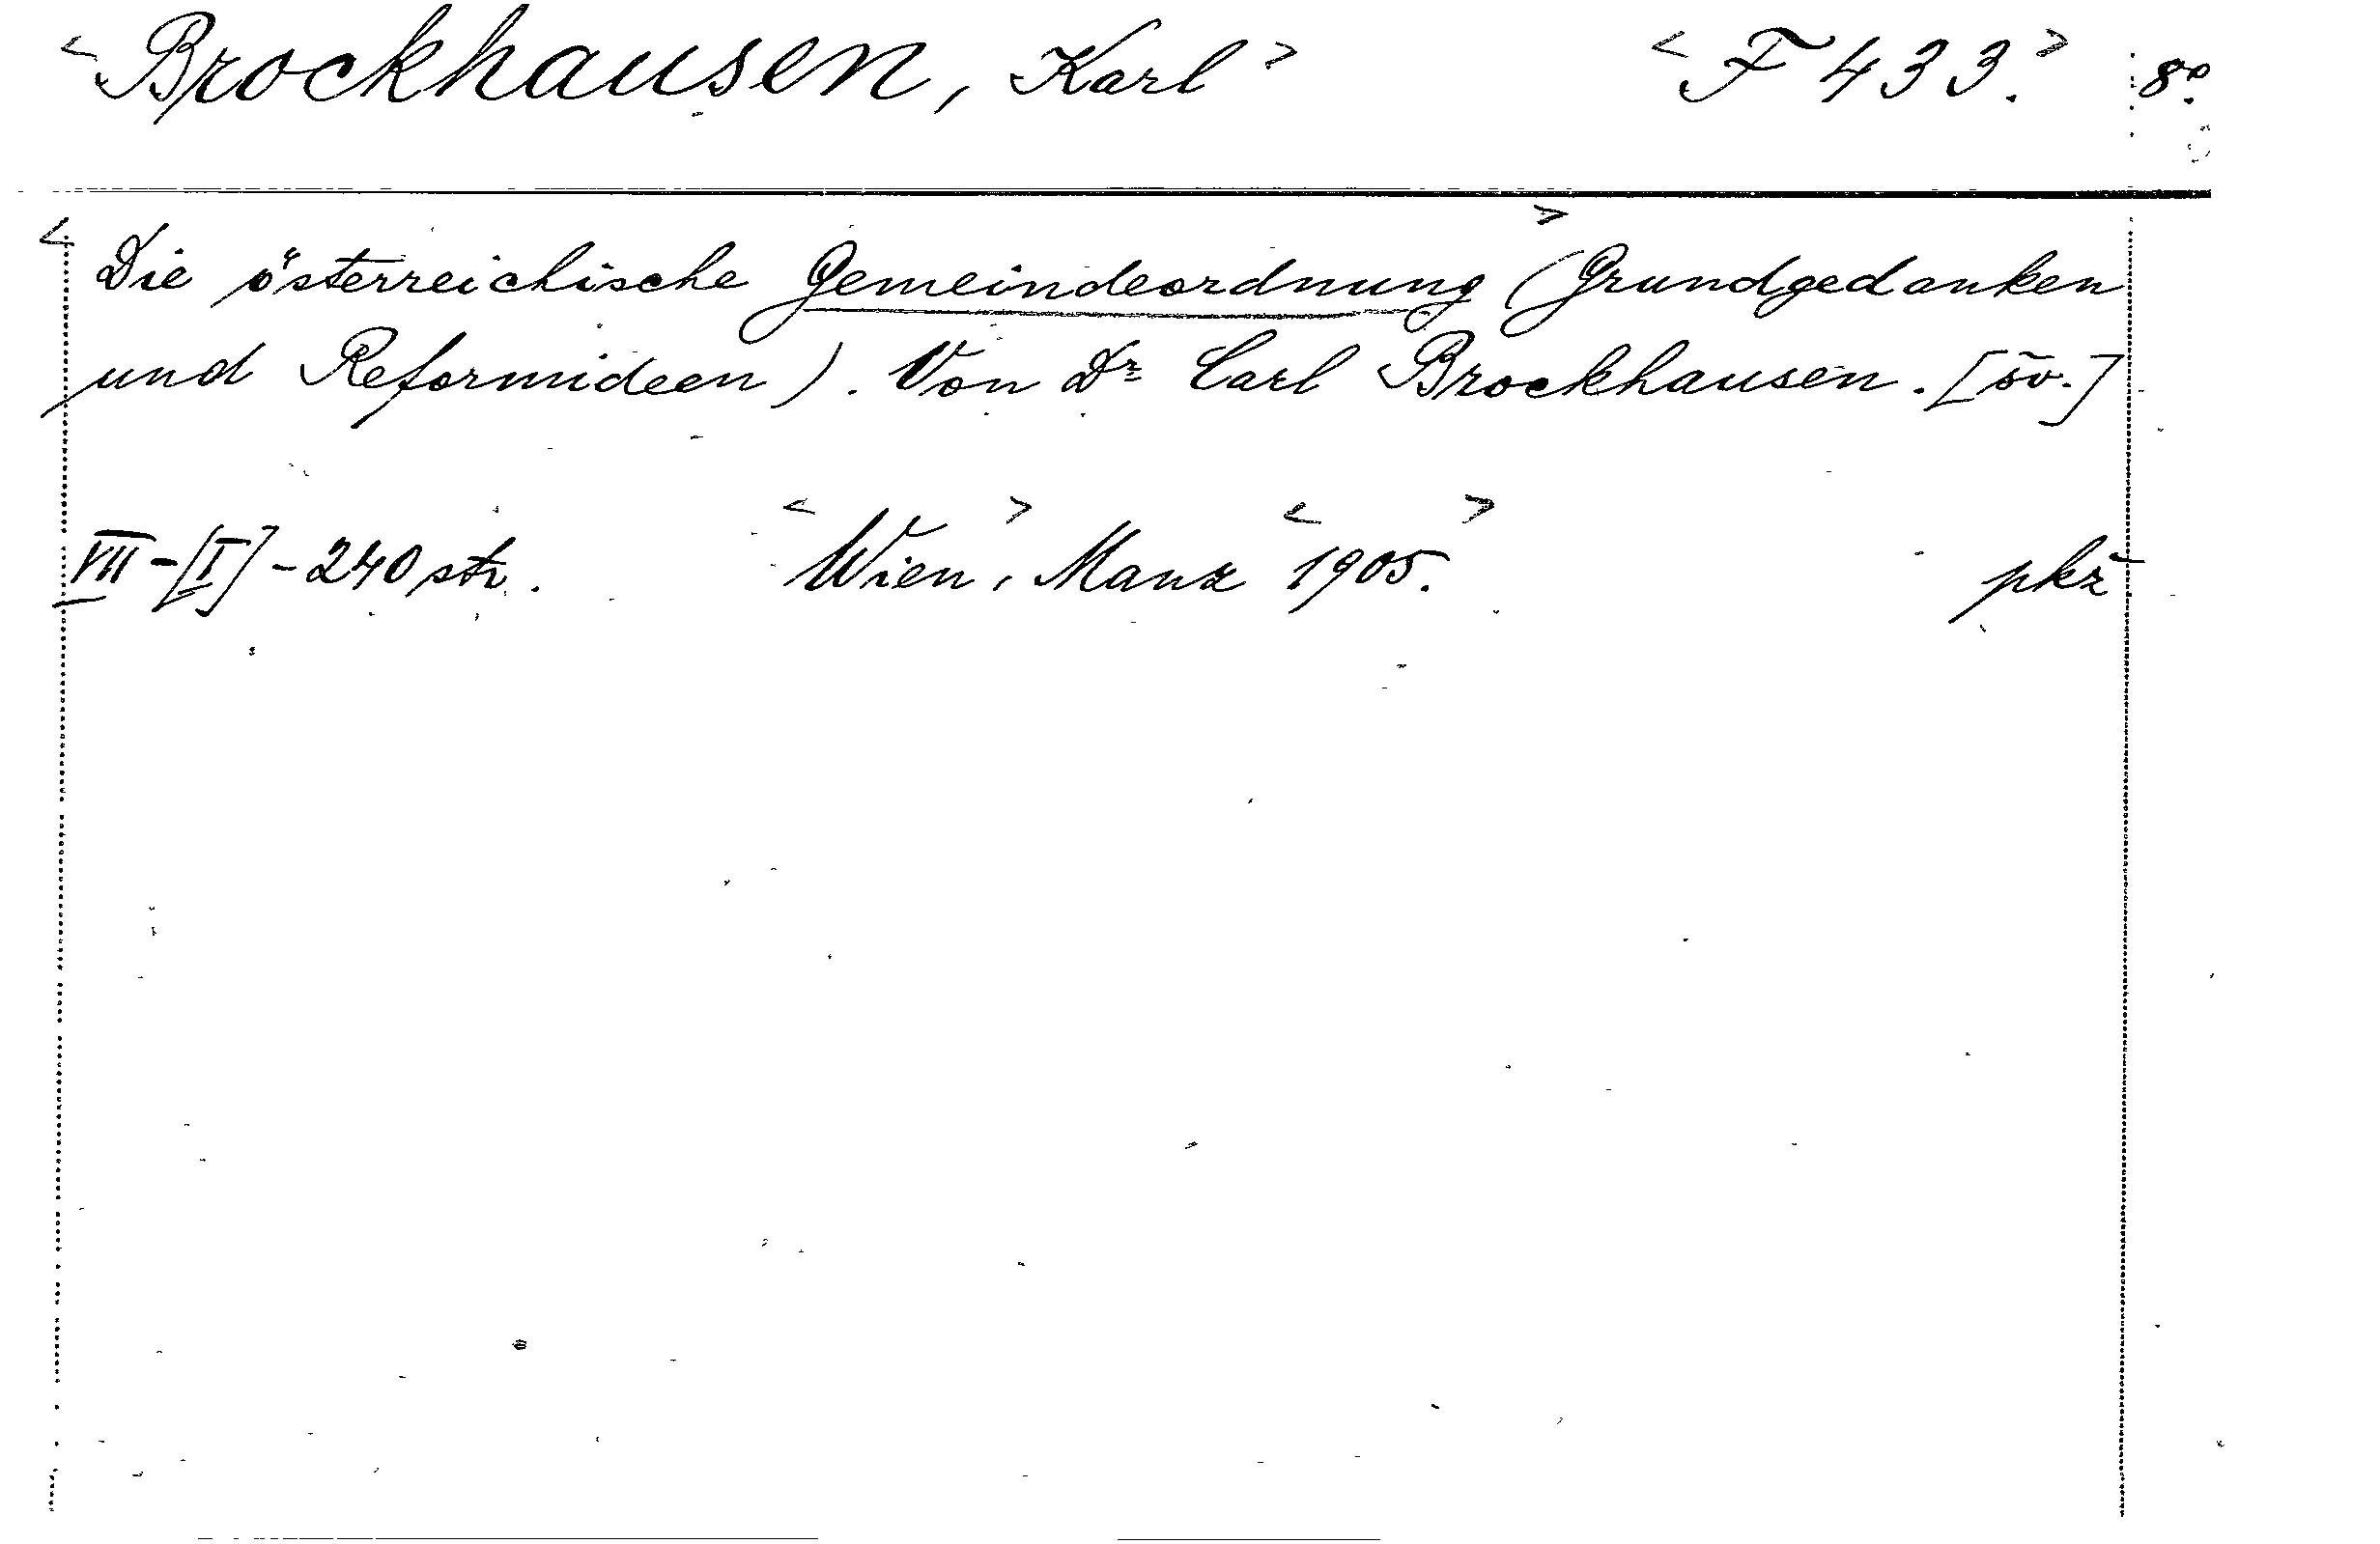 <Brockhausen, Karl> <F 433.> 8º.
<Die österreichische Gemeindeordnung> (Grundgedanken
und Reformideen). Von Dr Carl Brockhausen. [öv.]
VII-[I]-240 str. <Wien>, Manz <1905.> pkž